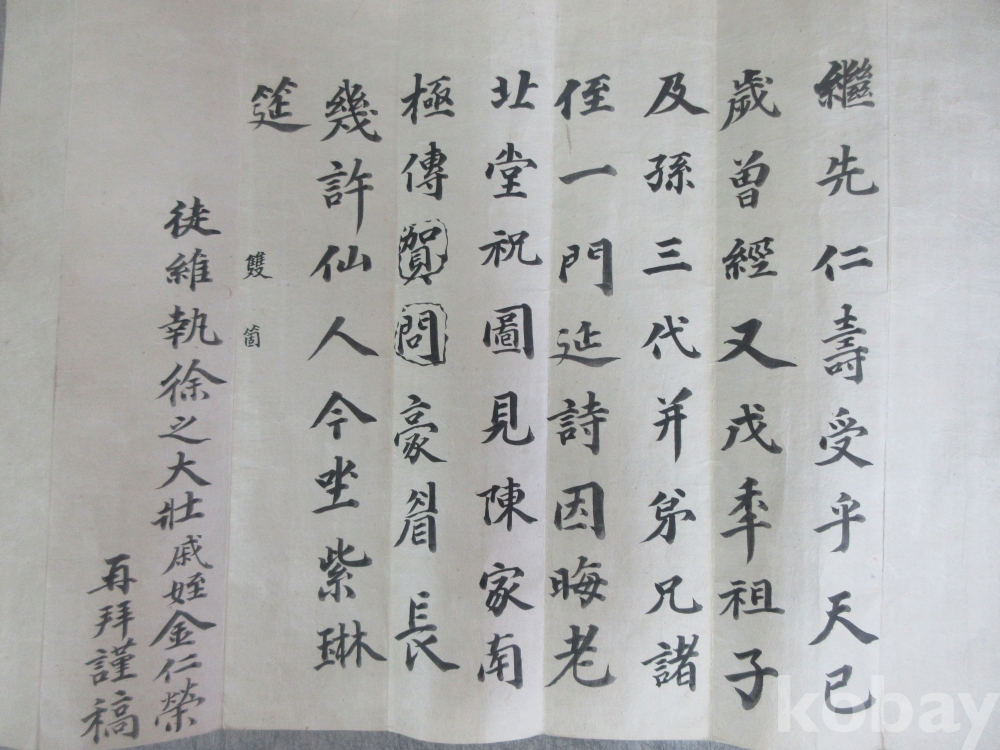 繼先仁壽受乎天已
歲曾經又戊秊祖子
及孫三代并弟兄諸
侄一門延詩因晦老
北堂祝圖見陳家南
極傳賀問豪眉長
幾許仙人今坐紫琳
筵
雙箇
徒維執徐之大壯戚姪金仁榮
再拜謹稿
kobay